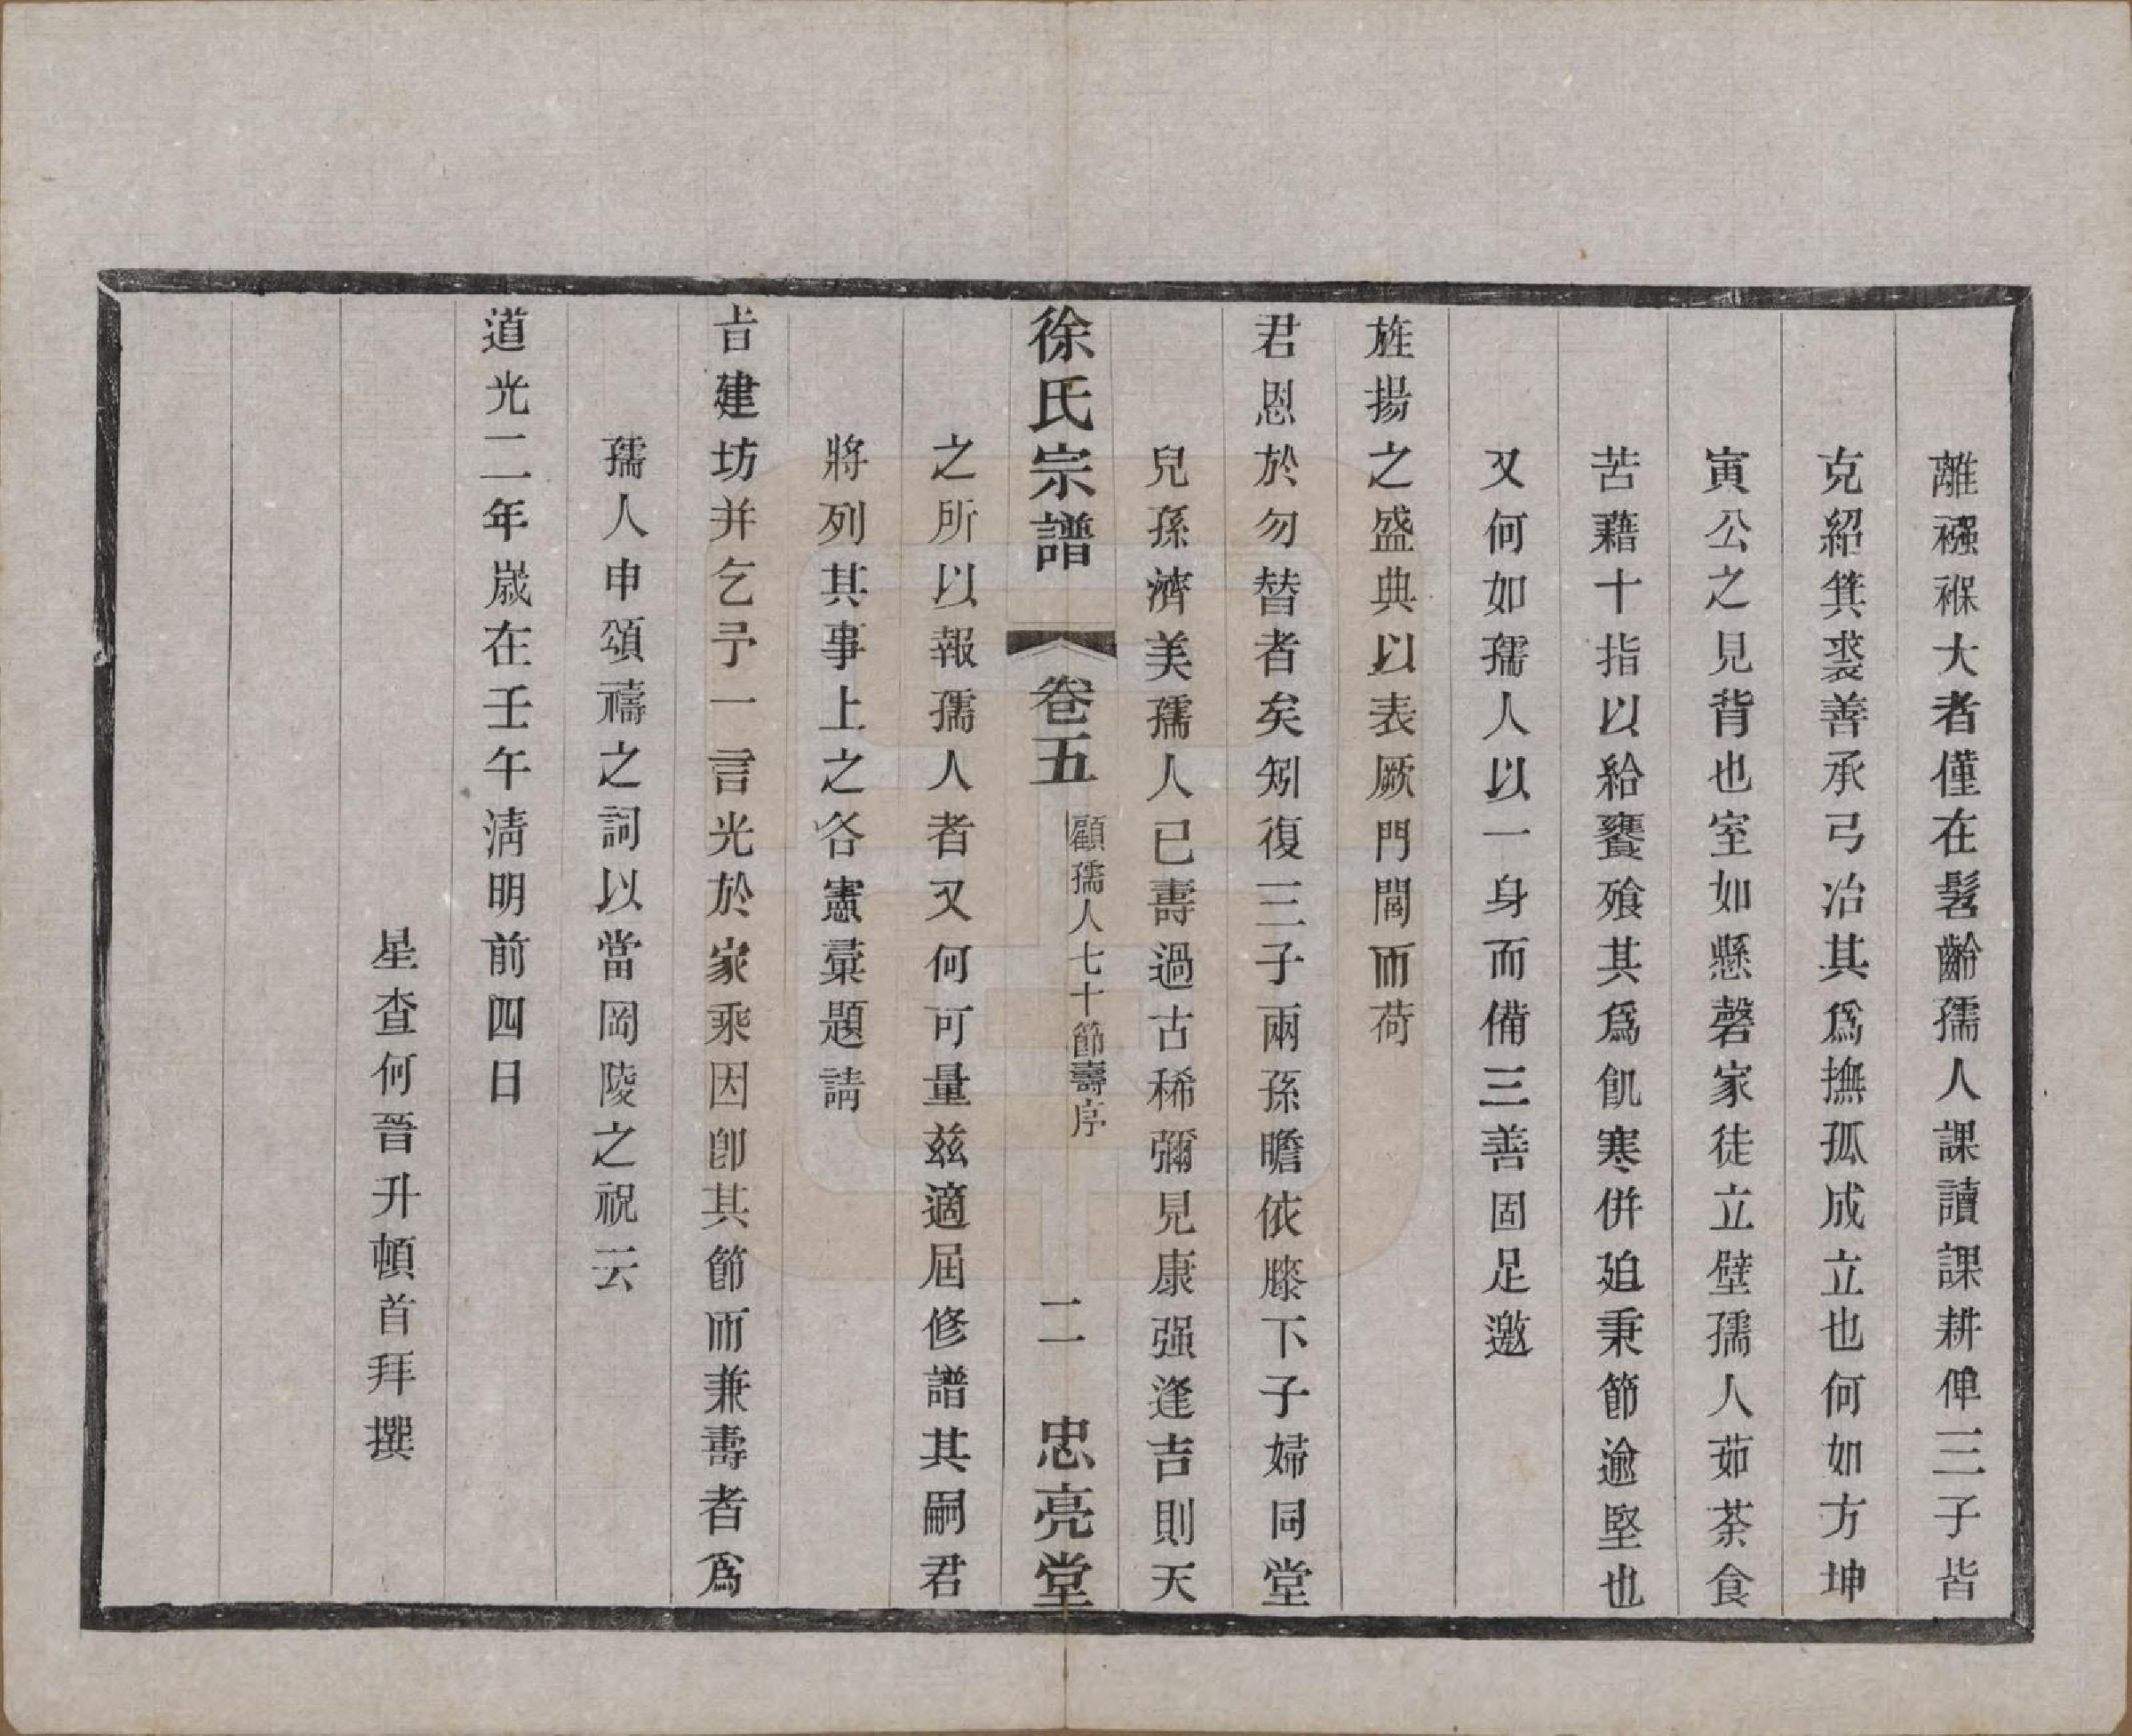 離襁褓大者僅在髫齡孺人課讀課耕俾三子皆
克紹箕裘善承弓冶其爲撫孤成立也何如方坤
寅公之見背也室如懸磬家徒立壁孺人茹荼食
苦藉十指以給饔飱其爲飢寒併廹秉節逾堅也
又何如孺人以一身而備三善固足邀
旌揚之盛典以表厥門閭而荷
君恩於勿替者矣矧復三子兩孫瞻依膝下子婦同堂
兒孫濟美孺人已壽過古稀彌見康强逢吉則天
徐氏宗譜 卷五 顧孺人七十節壽序 二 忠亮堂
之所以報孺人者又何可量兹適屆修譜其嗣君
將列其事上之各憲彚題請
旨建坊并乞予一言光於家乘因卽其節而兼壽者爲
孺人申頌禱之詞以當岡陵之祝云
道光二年歲在壬午淸明前四日
星查何晉升頓首拜撰